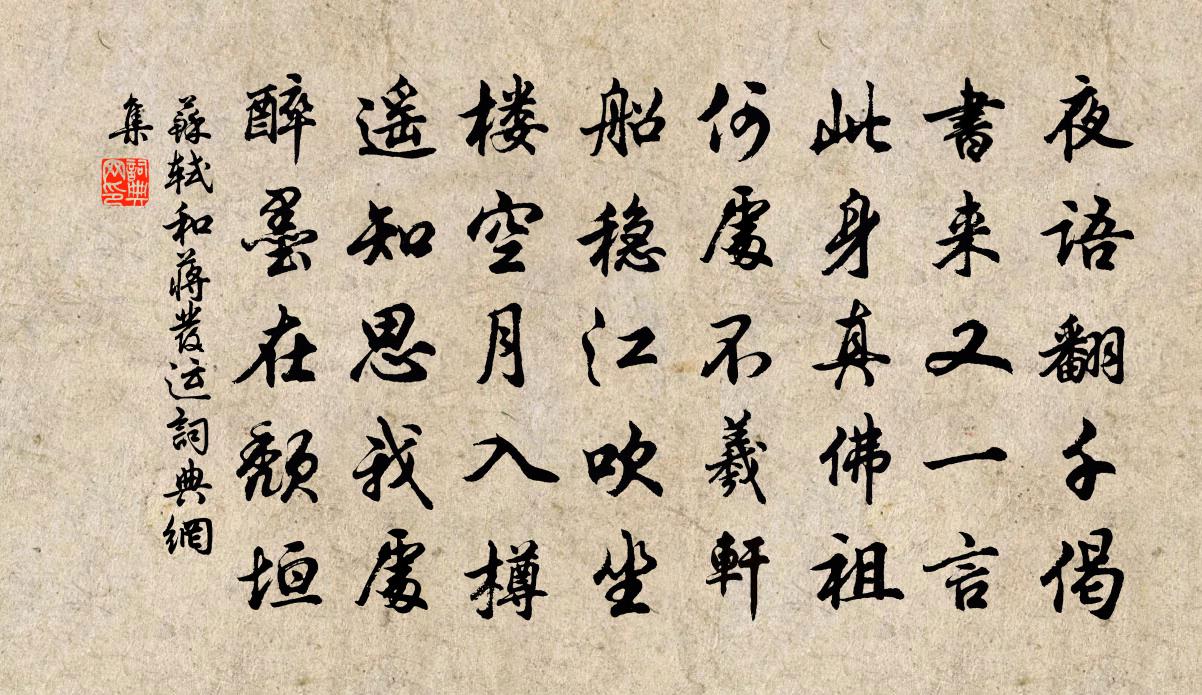 夜语翻千偈
書来又一言
此身真佛祖
何處不羲軒
船稳江吹坐
楼空月入樽
遥知思我處
醉墨在颓垣
蘇轼和蒋發运詞典網
集
詞典
网印